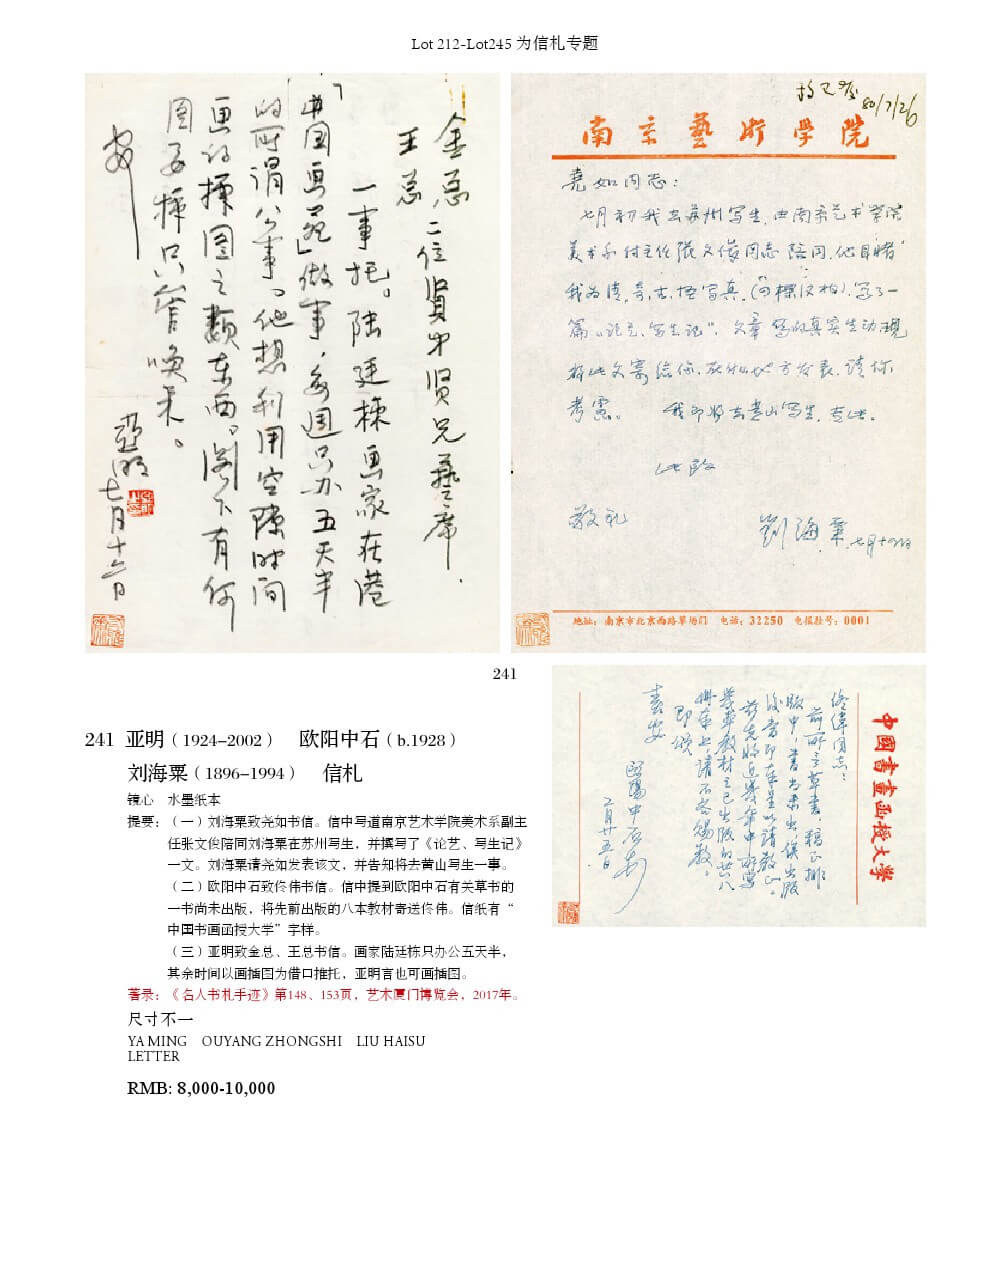 Lot 212-Lot245 为信札专题
金总
王总 二位贤弟贤兄艺席.
一事托。陆廷栋画家在港
「中国画苑」做事，每週只办五天半
的所谓公事。他想利用空隙时间
画的插图之类东西。阁下有何
图要插只管唤来。
安
亚明
七月十六日
80/7/26
南京藝术學院
尧如同志：
七月初我去苏州写生，由南京艺术学院
美术系付主任张文俊同志陪同，他目睹
我为清，奇，古，怪写真，(四棵汉柏)，写了一
篇“论艺、写生记”，文章写的真实生动，现
将此文寄给你，在你地方发表，请你
考虑。 我即将去黄山写生，专此。
此致
敬礼
劉海粟
地址：南京市北京西路草场门 电话：32250 电报挂号：0001
241
中國書畫函授大学
佟偉同志：
前所言草書，稿正排
版中，書尚未出，俟出版
後当即奉呈以请教正。
兹先将近幾年中所写
草率教材之已出版的共八
冊奉上，请不吝賜教。
即颂
春安
歐陽中石
二月廿五日
241 亚明（1924–2002） 欧阳中石（b.1928）
刘海粟（1896–1994） 信札
镜心 水墨纸本
提要：（一）刘海粟致尧如书信。信中写道南京艺术学院美术系副主
任张文俊陪同刘海粟在苏州写生，并撰写了《论艺、写生记》
一文。刘海粟请尧如发表该文，并告知将去黄山写生一事。
（二）欧阳中石致佟伟书信。信中提到欧阳中石有关草书的
一书尚未出版，将先前出版的八本教材寄送佟伟。信纸有“
中国书画函授大学”字样。
（三）亚明致金总、王总书信。画家陆廷栋只办公五天半，
其余时间以画插图为借口推托，亚明言也可画插图。
著录：《名人书札手迹》第148、153页，艺术厦门博览会，2017年。
尺寸不一
YA MING OUYANG ZHONGSHI LIU HAISU
LETTER
RMB: 8,000-10,000